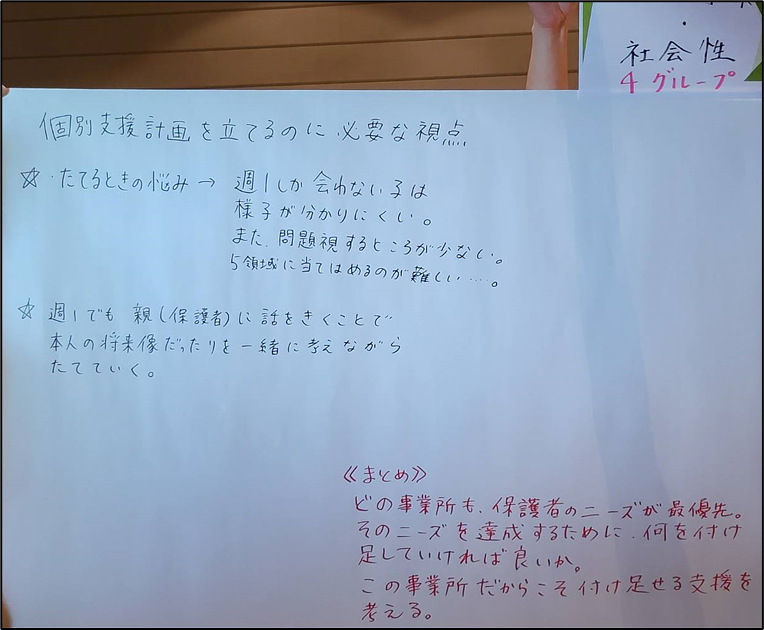 社会性
4グループ
個別支援計画を立てるのに必要な視点
☆・たてるときの悩み→ 週1しか会わない子は
様子が分かりにくい。
また、問題視するところが少ない。
5領域に当てはめるのが難しい…。
☆ 週1でも親(保護者)に話をきくことで
本人の将来像だったりを一緒に考えながら
たてていく。
《まとめ》
どの事業所も、保護者のニーズが最優先。
そのニーズを達成するために、何を付け
足していければ良いか。
この事業所だからこそ付け足せる支援を
考える。